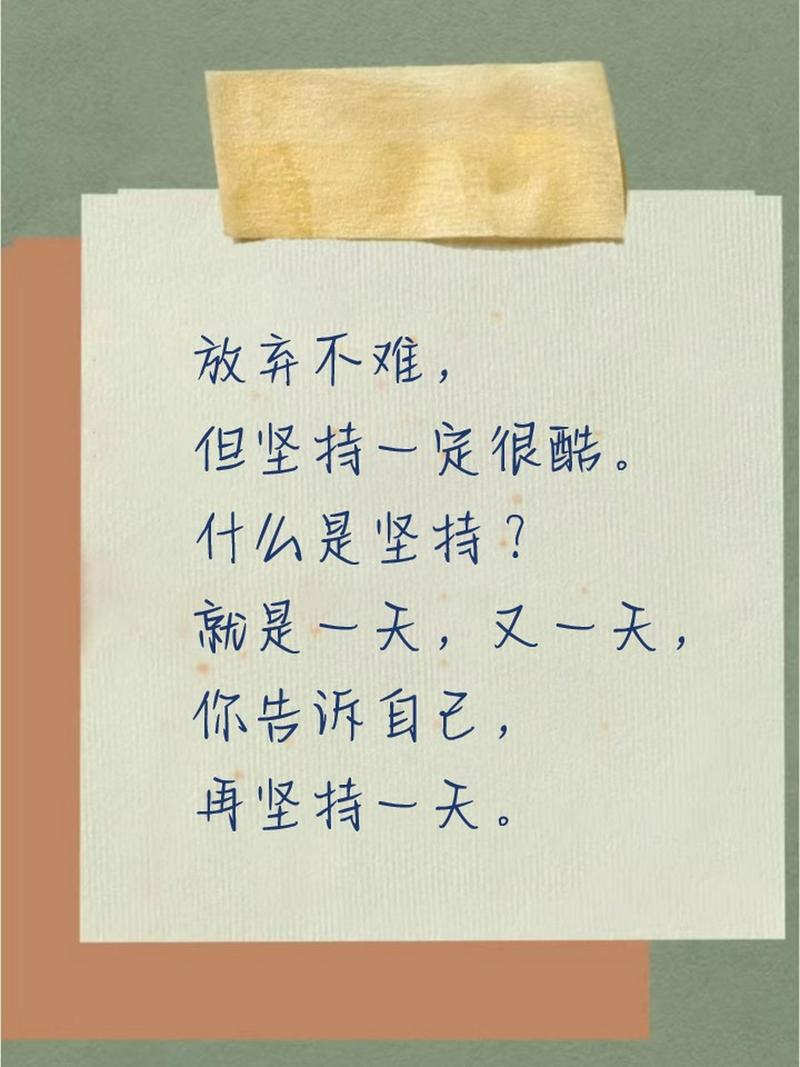 放弃不难，
但坚持一定很酷。
什么是坚持？
就是一天，又一天，
你告诉自己，
再坚持一天。